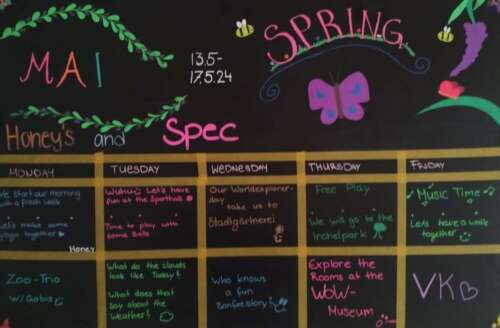 MAI
13.5-
17.5.24
SPRING
Honey's and Spec
MONDAY
TUESDAY
WEDNESDAY
THURSDAY
FRIDAY
We start our morning
with a fresh walk
Let's make some
together
Honey
Wuhu Let's have
fun at the Sporthalle
Time to play with
some Balls
Our Worldexplorer-
day take us to
Stadtgärtnerei
Free Play
We will go to the
Irchelpark
Music Time
Lets have a walk
together
Zoo-Trio
w/Gabis
What do the clouds
look like Today?
What does that
Say about the
Weather?
Who knows
a fun
Bonfirestory?
Explore the
Rooms at the
WOW-
Museum
VK